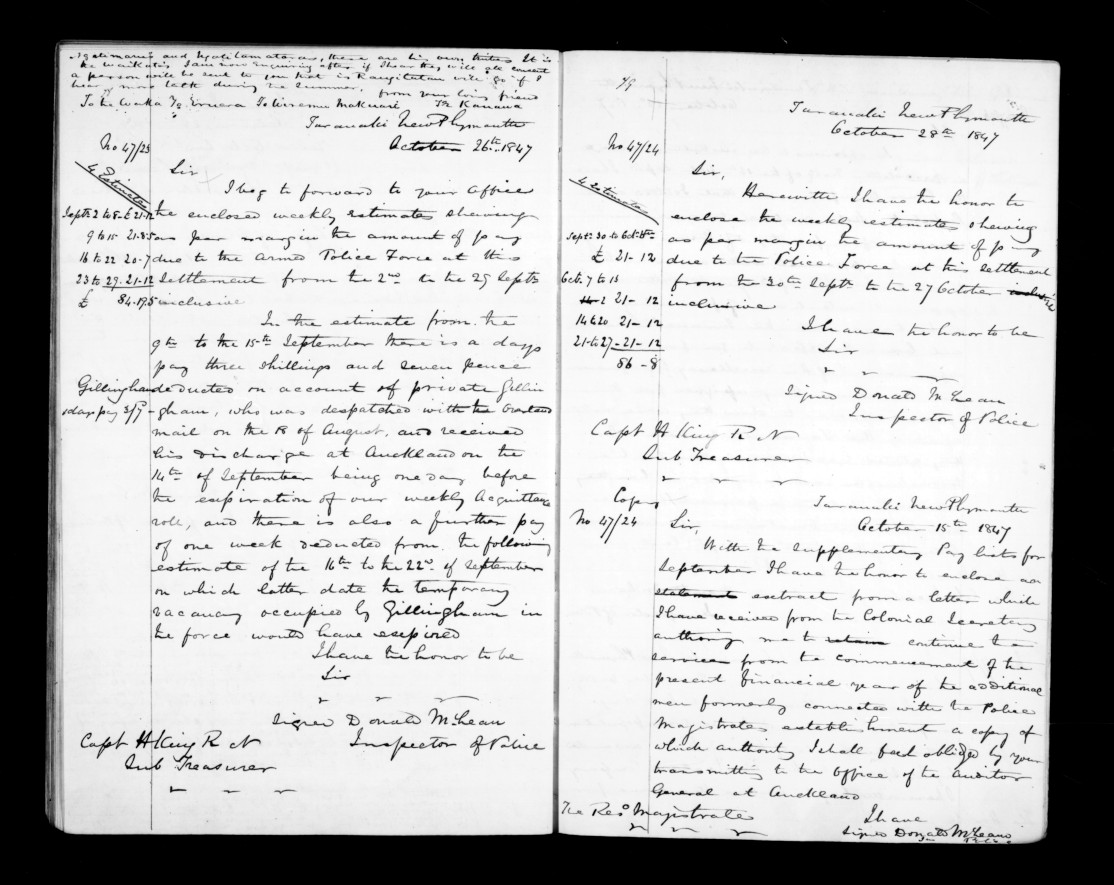 Ngatimaru and Ngatitamatoa, there are his own tribes It is
the Waikatos I am now enquiring after if I hear they will all consent
a person will be sent to you that is Rangitutau will go if I
hear more talk during the summer, from your loving friend
To te Waka To Eruera To Wiremu Te Kanawa
Taranaki New Plymouth
October 26th 1847
No 47/23
Sir
I beg to forward to your Office
4 Estimates
Septr 2 to 8 £ 21-12 the enclosed weekly estimates shewing
9 to 15 21.8.5 as per margin the amount of pay
16 to 22 20-7 due to the Armed Police Force at this
23 to 29 21-12 Settlement from the 2nd to the 29 Septr
£ 84.19.5 inclusive
In the estimate from the
9th to the 15th September there is a days
pay three shillings and seven pence
Gillingham deducted on account of private Gillin
1 days pay 3/7 - gham, who was despatched with the Overland
mail on the 18 of August, and received
his discharge at Auckland on the
14th of September being one day before
the expiration of our weekly Acquittance
role, and there is also a further pay
of one week deducted from the following
estimate of the 16th to the 22nd of September
on which latter date the temporary
vacancy occupied by Gillingham in
the force would have expired
I have the honor to be
Sir
Signed Donald McLean
Capt H King R N Inspector of Police
Sub Treasurer
79
Taranaki New Plymouth
October 28th 1847
No 47/24
Sir,
4 Estimates
Herewith I have the honor to
enclose the weekly estimates shewing
Septr 30 to Octr 6th as per margin the amount of pay
£ 21-12 due to the Police Force at this settlement
Oct. 7 to 13 from the 30th Septr to the 27 October inclusive
21-12 inclusive
14 to 20 21-12 I have the honor to be
21 to 27 - 21-12 Sir
86-8
Signed Donald McLean
Inspector of Police
Capt H King R N
Sub Treasurer
Copy
Taranaki New Plymouth
No 47/24 Sir, October 15th 1847
With the Supplementary Pay lists for
September I have the honor to enclose an
statement extract from a letter which
I have received from the Colonial Secretary
authorizing me to retain continue the
services from the commencement of the
present financial year of the additional
men formerly connected with the Police
Magistrates establishment a copy of
which authority I shall feel obliged by your
transmitting to the Office of the Auditor
General at Auckland
The Resd Magistrate I have
Signed Donald McLean